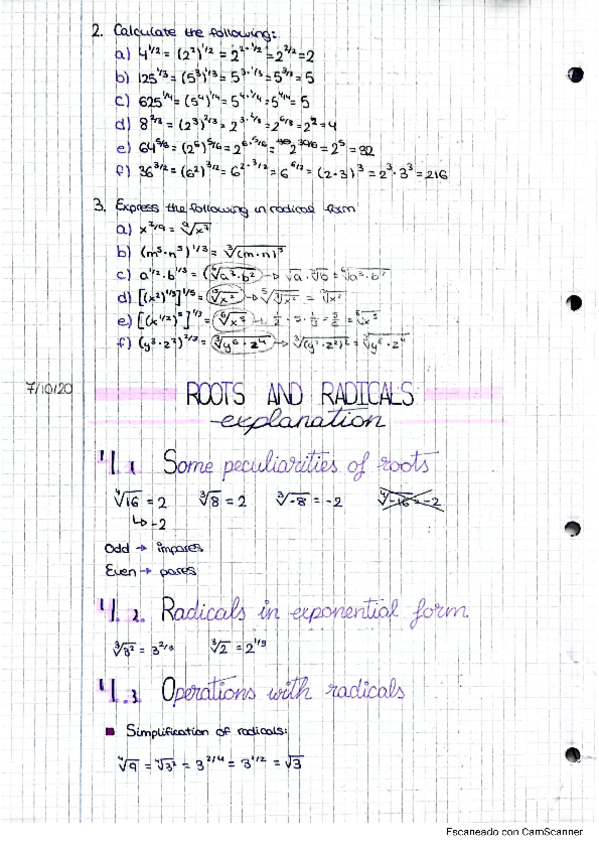 2. Calculate the following:
a) 4^1/2 = (2^2)^1/2 = 2^2·1/2 = 2^2/2 = 2
b) 125^1/3 = (5^3)^1/3 = 5^3·1/3 = 5^3/3 = 5
c) 625^1/4 = (5^4)^1/4 = 5^4·1/4 = 5^4/4 = 5
d) 8^2/3 = (2^3)^2/3 = 2^3·2/3 = 2^6/3 = 2^2 = 4
e) 64^5/6 = (2^6)^5/6 = 2^6·5/6 = 2^30/6 = 2^5 = 32
f) 36^3/2 = (6^2)^3/2 = 6^2·3/2 = 6^6/2 = (2·3)^3 = 2^3·3^3 = 216
3. Express the following in radical form
a) x^7/9 = ⁹√x^7
b) (m^5·n^5)^1/3 = ³√(m·n)^5
c) a^1/2·b^1/3 = ⁶√a^3·b^2 → √a·³√b = ⁶√a^3·b^2
d) [(x^2)^1/3]^1/5 = ¹⁵√x^2 → ⁵√³√x^2 = ¹⁵√x^2
e) [(x^1/2)^5]^1/3 = ⁶√x^5 → 1/2·5·1/3 = 5/6 = ⁶√x^5
f) (y^3·z^2)^2/3 = ³√y^6·z^4 → ³√(y^3·z^2)^2 = ³√y^6·z^4
7/10/20 ROOTS AND RADICALS
explanation
4.1. Some peculiarities of roots
⁴√16 = 2 ³√8 = 2 ³√-8 = -2 ⁴√-16 = -2
↳ -2
Odd → impares
Even → pares
4.2. Radicals in exponential form
³√3^2 = 3^2/3 ³√2 = 2^1/3
4.3. Operations with radicals
■ Simplification of radicals:
⁴√9 = ⁴√3^2 = 3^2/4 = 3^1/2 = √3
Escaneado con CamScanner